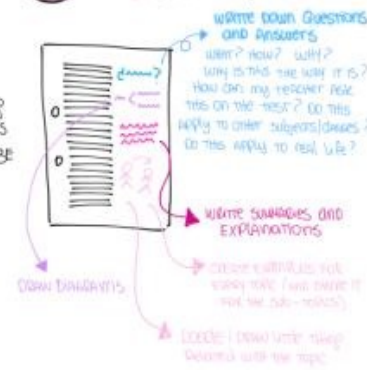 WRITE DOWN QUESTIONS
AND ANSWERS
WHAT? HOW? WHY?
WHY IS THIS THE WAY IT IS?
HOW CAN MY TEACHER ASK
THIS ON THE TEST? DO THIS
APPLY TO OTHER SUBJECTS/CLASSES?
DO THIS APPLY TO REAL LIFE?
WRITE SUMMARIES AND
EXPLANATIONS
DRAW DIAGRAMS
CREATE EXAMPLES FOR
EVERY TOPIC (AND
FOR THE SUB-TOPICS)
DOODLE / DRAW LITTLE THINGS
RELATED WITH THE TOPIC